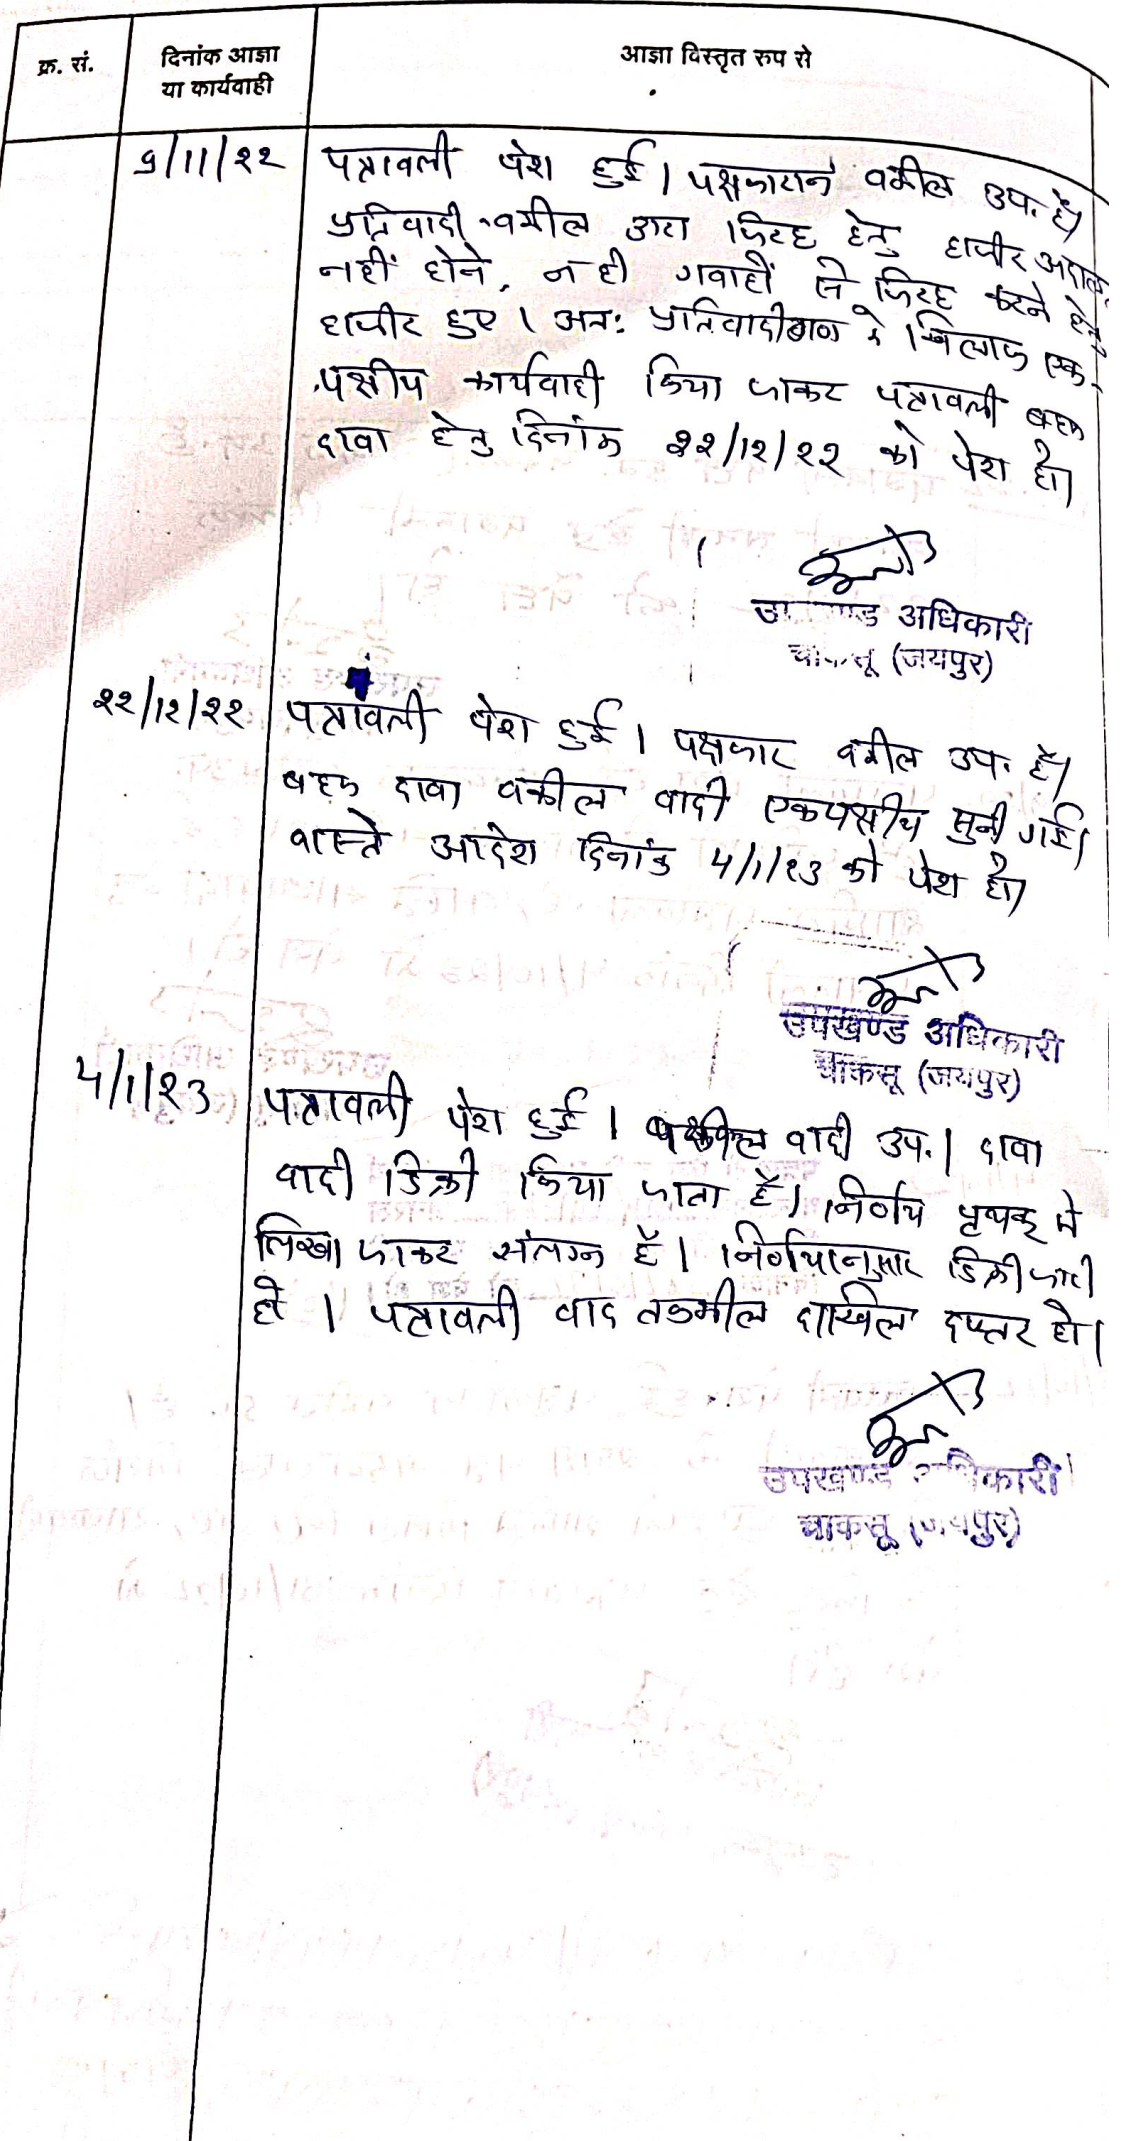 क्र. सं.
दिनांक आज्ञा
या कार्यवाही
आज्ञा विस्तृत रुप से
9/11/22
पत्रावली पेश हुई। पक्षकारान वकील उप. है।
प्रतिवादी वकील द्वारा जिरह हेतु हाजीर अदालत
नहीं होने, न ही गवाहों से जिरह करने हेतु
हाजीर हुए। अतः प्रतिवादीगण के खिलाफ एक-
पक्षीय कार्यवाही किया जाकर पत्रावली बहस
दावा हेतु दिनांक 22/12/22 को पेश हो।
उपखण्ड अधिकारी
चाकसू (जयपुर)
22/12/22
पत्रावली पेश हुई। पक्षकार वकील उप. है।
बहस दावा वकील वादी एकपक्षीय सुनी गई।
वास्ते आदेश दिनांक 4/1/23 को पेश हो।
उपखण्ड अधिकारी
चाकसू (जयपुर)
4/1/23
पत्रावली पेश हुई। वकील वादी उप.। दावा
वादी डिक्री किया जाता है। निर्णय पृथक् से
लिखा जाकर संलग्न है। निर्णयानुसार डिक्री जारी
हो। पत्रावली बाद तकमील दाखिल दफ्तर हो।
उपखण्ड अधिकारी
चाकसू (जयपुर)